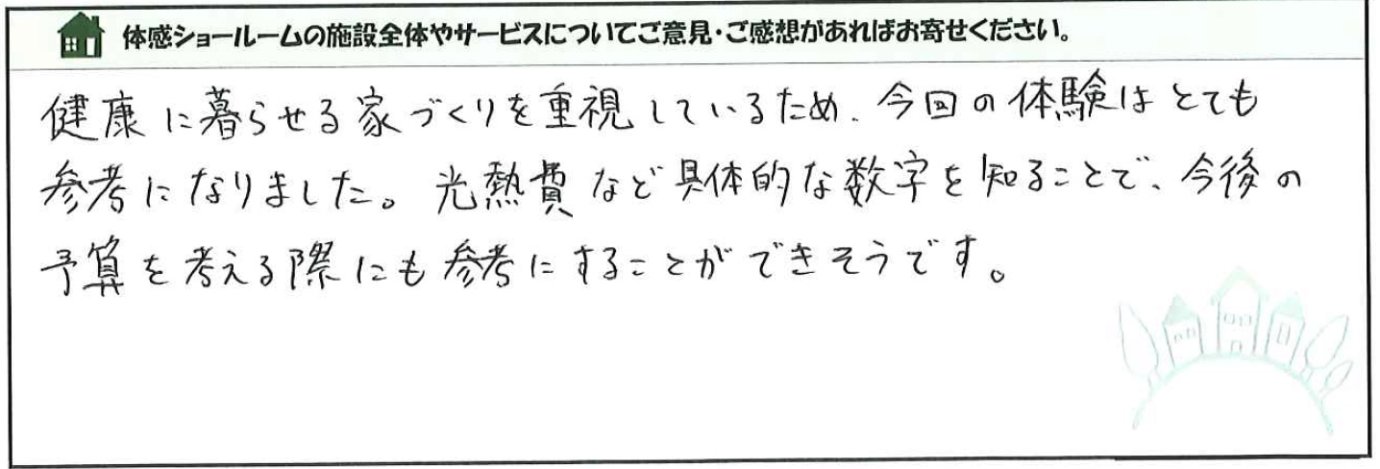 体感ショールームの施設全体やサービスについてご意見・ご感想があればお寄せください。
健康に暮らせる家づくりを重視しているため、今回の体験はとても
参考になりました。光熱費など具体的な数字を知ることで、今後の
予算を考える際にも参考にすることができそうです。